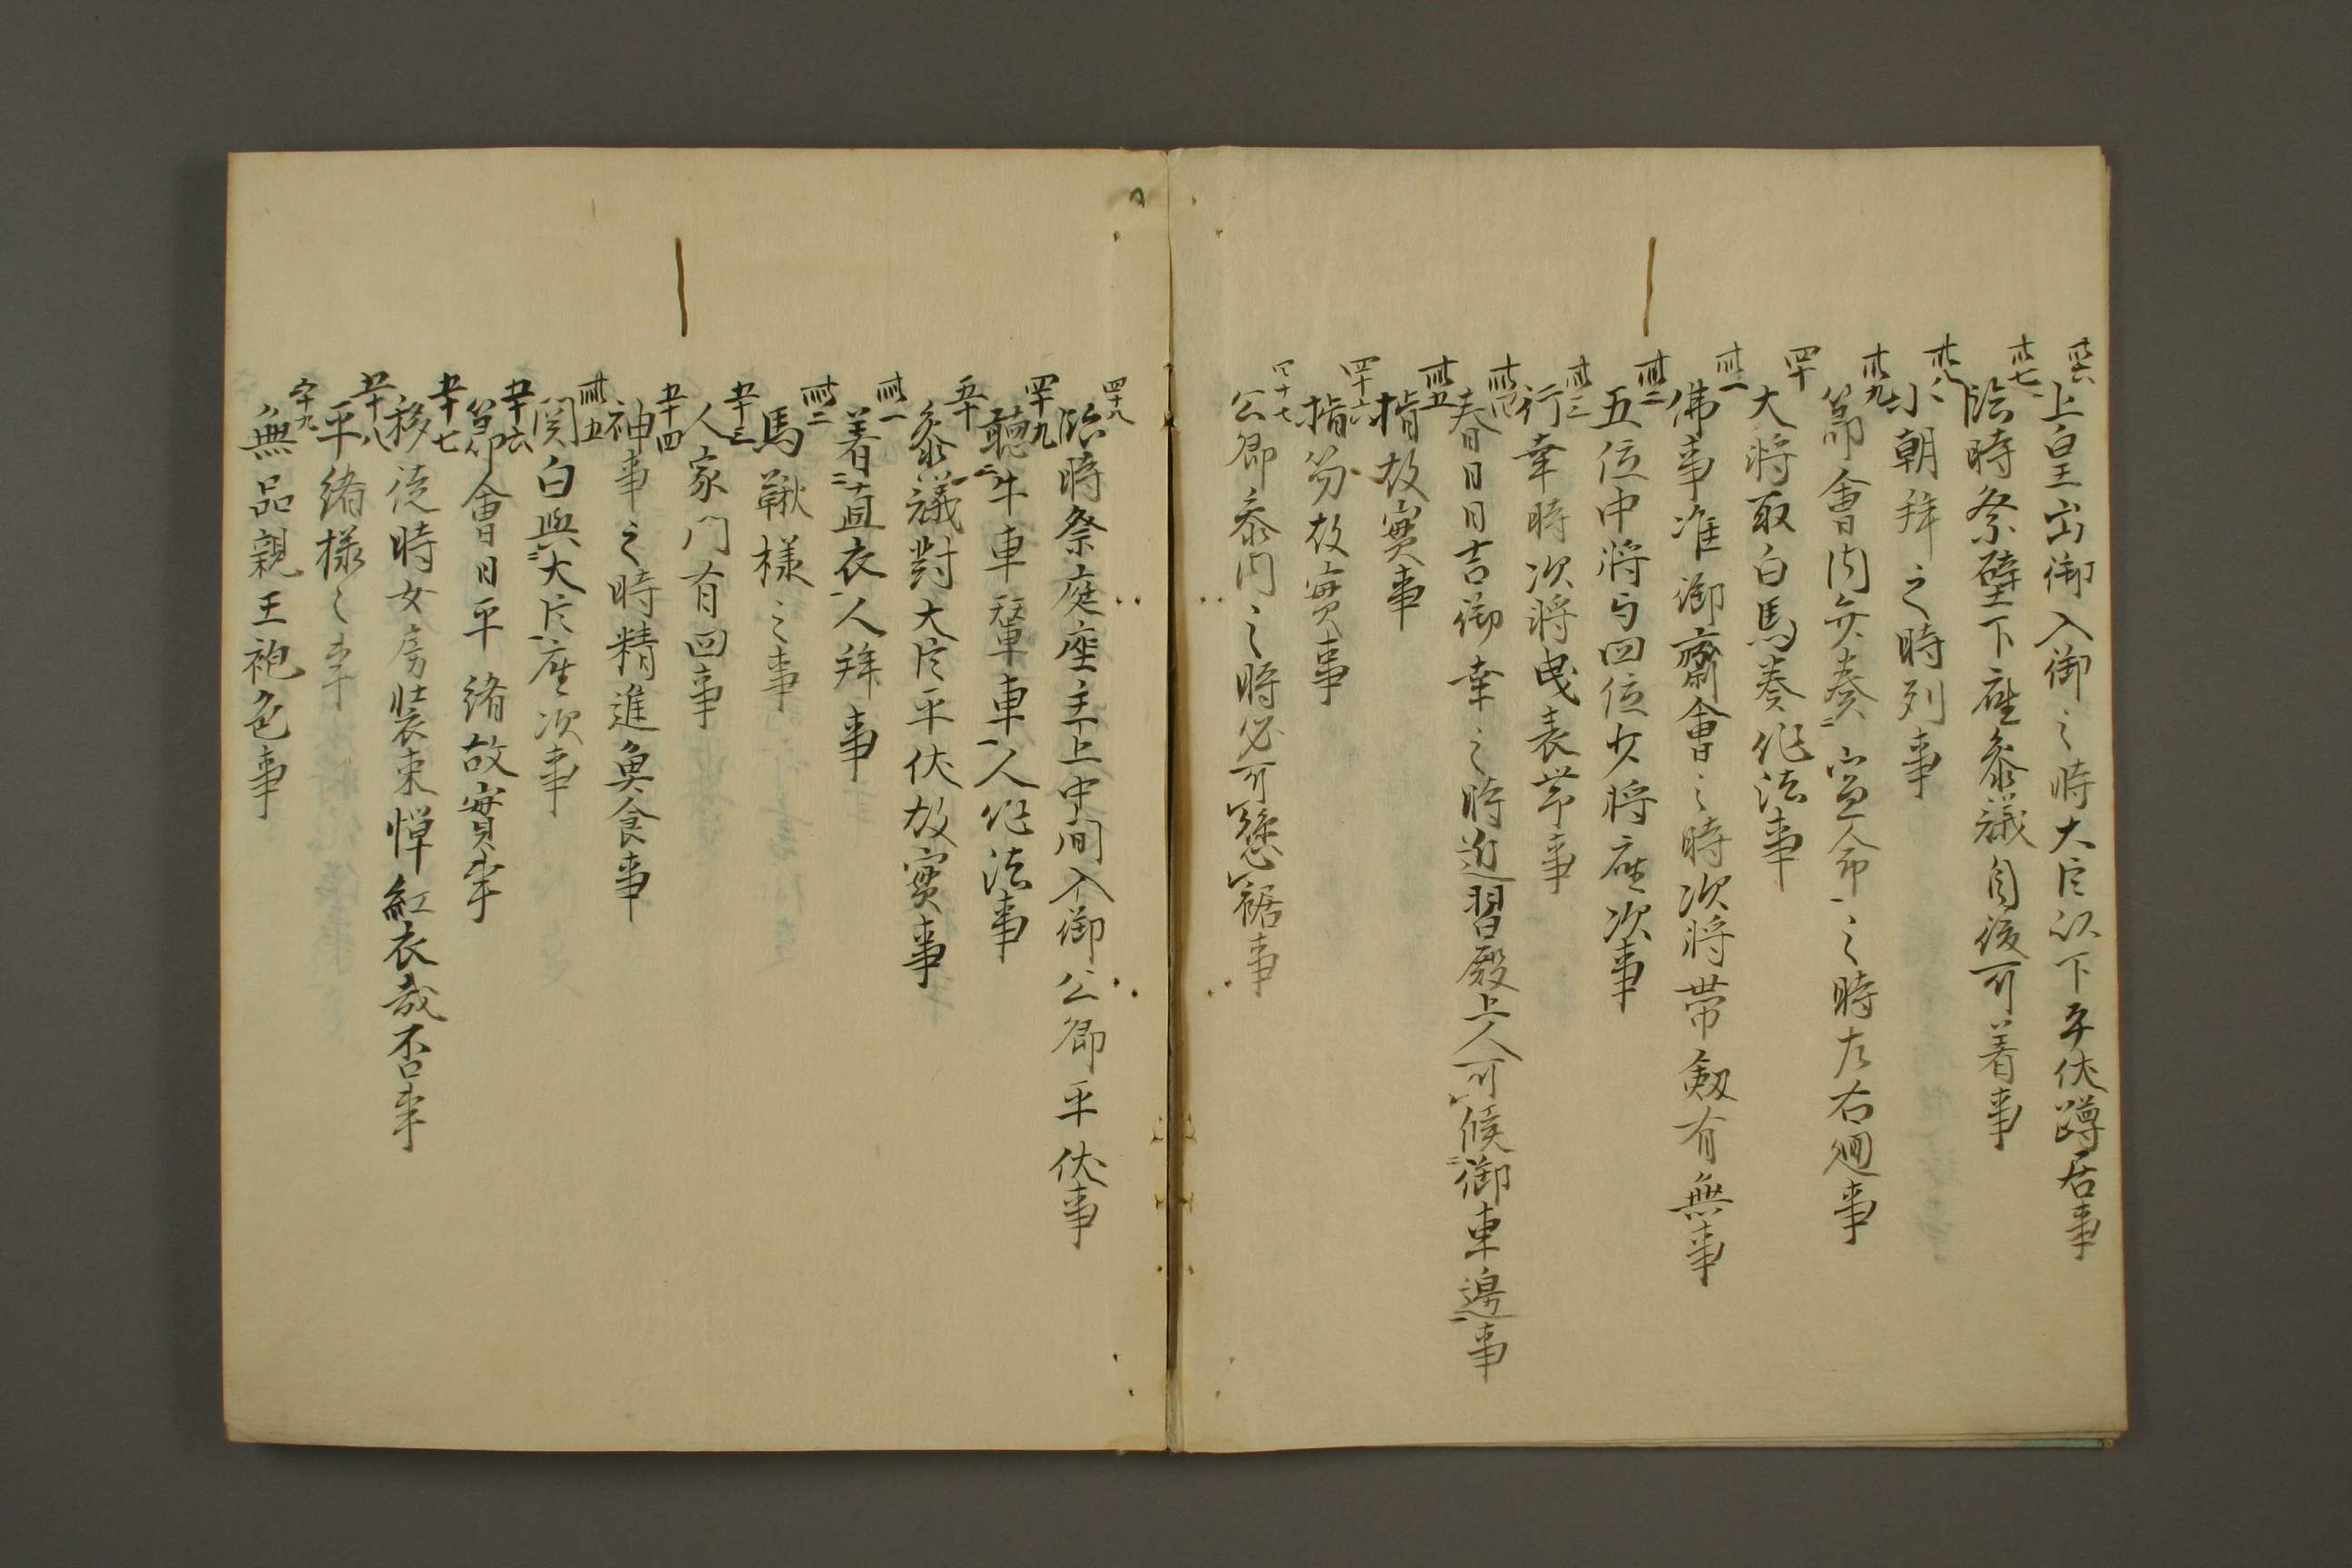 卅六 上皇出御入御之時大臣以下平伏蹲居事
卅七 臨時祭壁下座参議自後可着事
卅八 小朝拜之時列事
卅九 節會内弁奏宣命之時左右廻事
四十 大将取白馬奏作法事
卌一 佛事准御齋會之時次将帯劔有無事
卌二 五位中将与四位少将座次事
卌三 行幸時次将曳表帯事
卌四 春日日吉御幸之時近習殿上人可候御車邊事
卌五 揖故實事
四十六 指笏故實事
四十七 公卿参内之時必可懸裾事
四十八 臨時祭庭座主上中間入御公卿平伏事
四十九 聴牛車輦車人作法事
五十 参議對大臣平伏故實事
卌一 着直衣人拜事
卌二 馬鞦様之事
五十三 人家門有四事
五十四 神事之時精進魚食事
卌五 関白與大臣座次事
五十六 節會日平緒故實事
五十七 移徙時女房装束憚紅衣哉否事
五十八 平緒様之事
五十九 無品親王袍色事